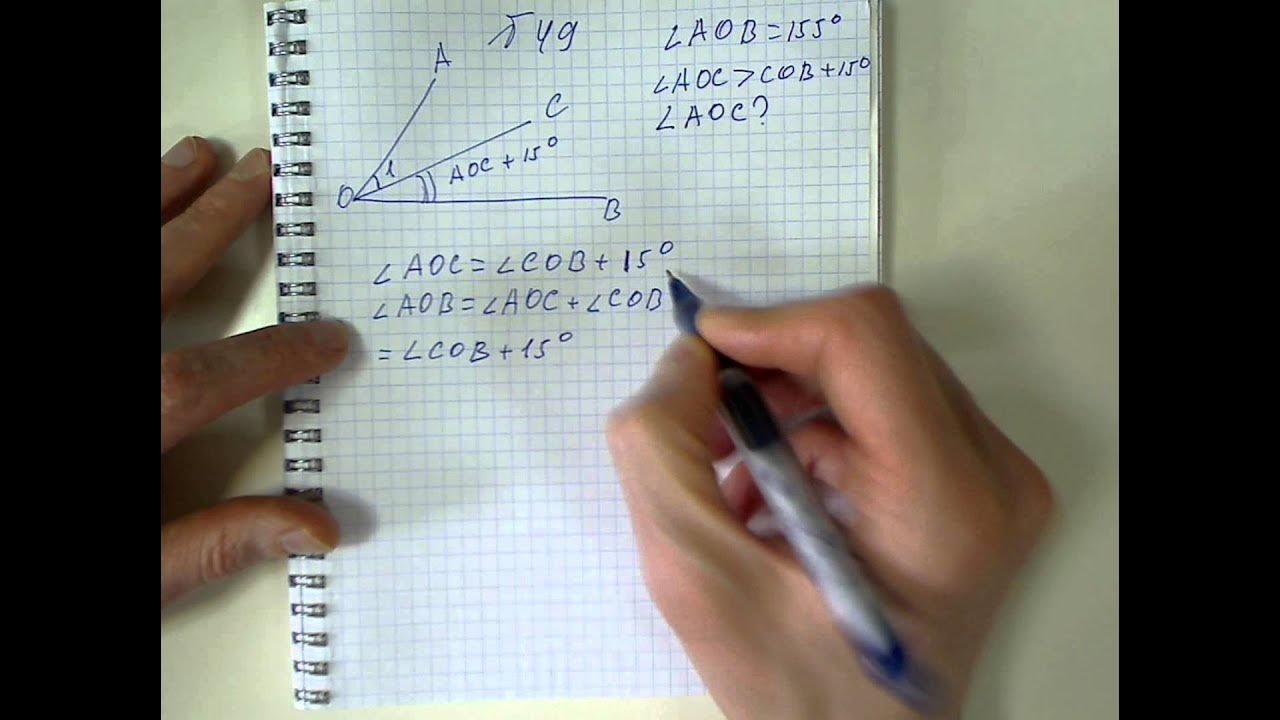 № 49
∠AOB = 155°
∠AOC > COB + 15°
∠AOC?
A
C
1
AOC + 15°
O
B
∠AOC = ∠COB + 15°
∠AOB = ∠AOC + ∠COB
= ∠COB + 15°